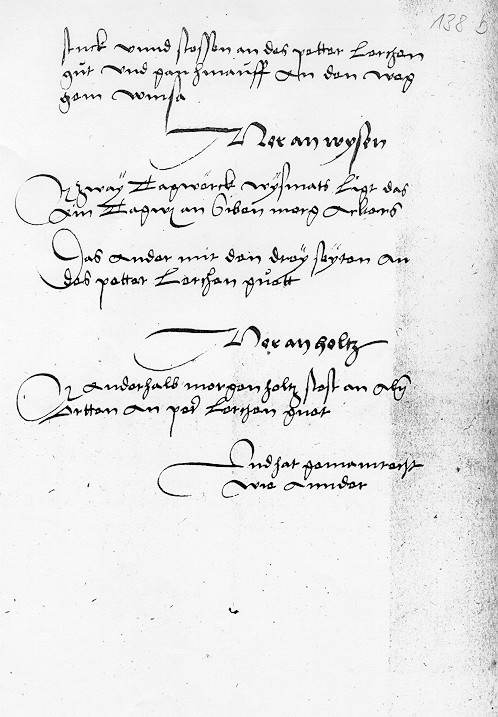 138 b
stuck vnnd stossen an des petter Lerchen
gut vnd gan hinauff an den weg
gem winsa
Mer an wysen
Zway Tagwerck wysmats ligt das
Ain Tagw an Siben morg Ackers
Das Ander mit den drey seytten an
des petter Lerchen guett
Mer an holtz
Anderhalb morgen holtz stost an aln
Ortten an peter Lerchen guet
Vnd hat gemainrecht
wie Annder